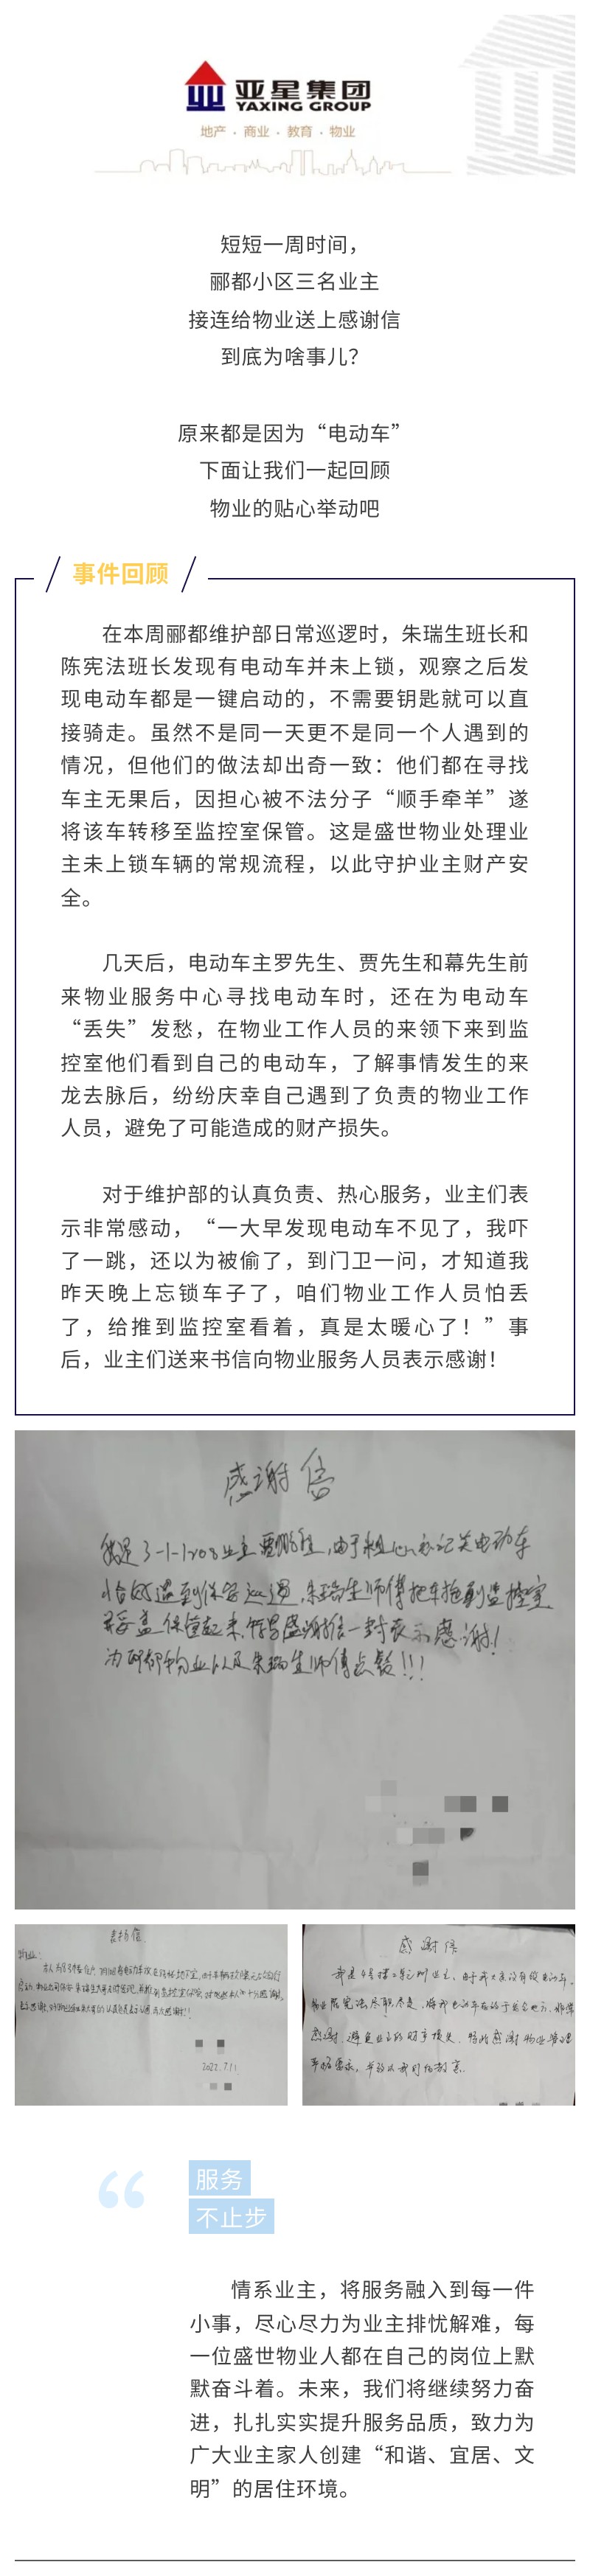 亚星集团
YAXING GROUP
地产 · 商业 · 教育 · 物业
短短一周时间，
郦都小区三名业主
接连给物业送上感谢信
到底为啥事儿？
原来都是因为“电动车”
下面让我们一起回顾
物业的贴心举动吧
事件回顾
在本周郦都维护部日常巡逻时，朱瑞生班长和
陈宪法班长发现有电动车并未上锁，观察之后发
现电动车都是一键启动的，不需要钥匙就可以直
接骑走。虽然不是同一天更不是同一个人遇到的
情况，但他们的做法却出奇一致：他们都在寻找
车主无果后，因担心被不法分子“顺手牵羊”遂
将该车转移至监控室保管。这是盛世物业处理业
主未上锁车辆的常规流程，以此守护业主财产安
全。
几天后，电动车主罗先生、贾先生和幕先生前
来物业服务中心寻找电动车时，还在为电动车
“丢失”发愁，在物业工作人员的来领下来到监
控室他们看到自己的电动车，了解事情发生的来
龙去脉后，纷纷庆幸自己遇到了负责的物业工作
人员，避免了可能造成的财产损失。
对于维护部的认真负责、热心服务，业主们表
示非常感动，“一大早发现电动车不见了，我吓
了一跳，还以为被偷了，到门卫一问，才知道我
昨天晚上忘锁车子了，咱们物业工作人员怕丢
了，给推到监控室看着，真是太暖心了！”事
后，业主们送来书信向物业服务人员表示感谢！
感谢信
我是3-1-1208业主由于粗心忘记关电动车
恰好遇到保安巡逻，朱瑞生师傅把车拖到监控室
保管起来，感谢信一封表示感谢！
为郦都物业以及朱瑞生师傅点赞！！！
表扬信
物业：
2022.7.11
感谢信
服务
不止步
情系业主，将服务融入到每一件
小事，尽心尽力为业主排忧解难，每
一位盛世物业人都在自己的岗位上默
默奋斗着。未来，我们将继续努力奋
进，扎扎实实提升服务品质，致力为
广大业主家人创建“和谐、宜居、文
明”的居住环境。